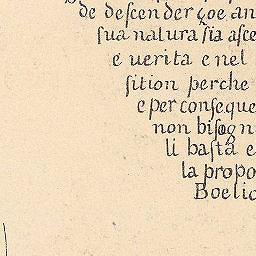 de descender çoe an
sua natura sia asce
e uerita e nel
sition perche
e per conseque
non bisogn
li basta e
la propo
Boelic